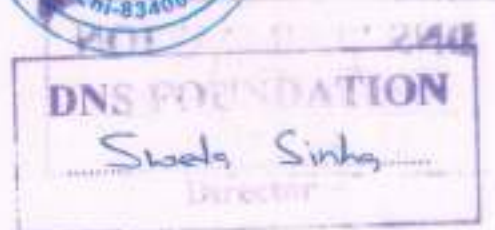 hi-83400
DNS FOUNDATION
Sweta Sinha
Director